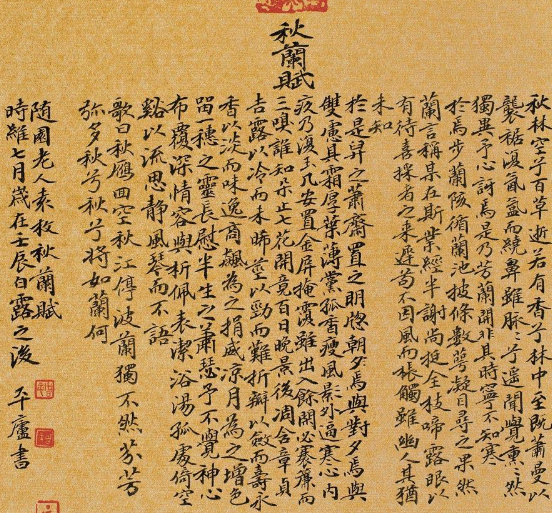 秋蘭賦
秋林空兮百草逝若有香兮林中至既蕭曼以
襲裾復氤氳而繞鼻雖脈脈兮遙聞覺熏熏然
獨異予心訝焉是乃芳蘭開非其時寧不知寒
於焉步蘭陔循蘭池披條數萼凝目尋之果然
蘭言稱某在斯業經半謝尚挺全枝啼露眼以
有待喜採者之來遲苟不因風而棖觸雖幽人其猶
未知
於是舁之蕭齋置之明窗朝夕焉與對夕焉與
雙慮其霜厚葉薄黨孤香瘦風影外逼寒心內
疚乃復玉几安置金屏掩覆雖出入餘閒必褰簾而
三嗅誰知朵止七花開竟百日晚景後凋含章貞
吉露以冷而未晞莖以勁而難折瓣以斂而壽永
香以淡而味逸商飆為之捐威涼月為之增色
留一穗之靈長慰半生之蕭瑟予不覺神心
布覆深情容與析佩表潔浴湯孤處倚空
谿以流思靜風琴而不語
歌曰秋雁回空秋江停波蘭獨不然芬芳
彌多秋兮秋兮將如蘭何
隨園老人袁枚秋蘭賦
時維七月歲在壬辰白露之後 平廬書